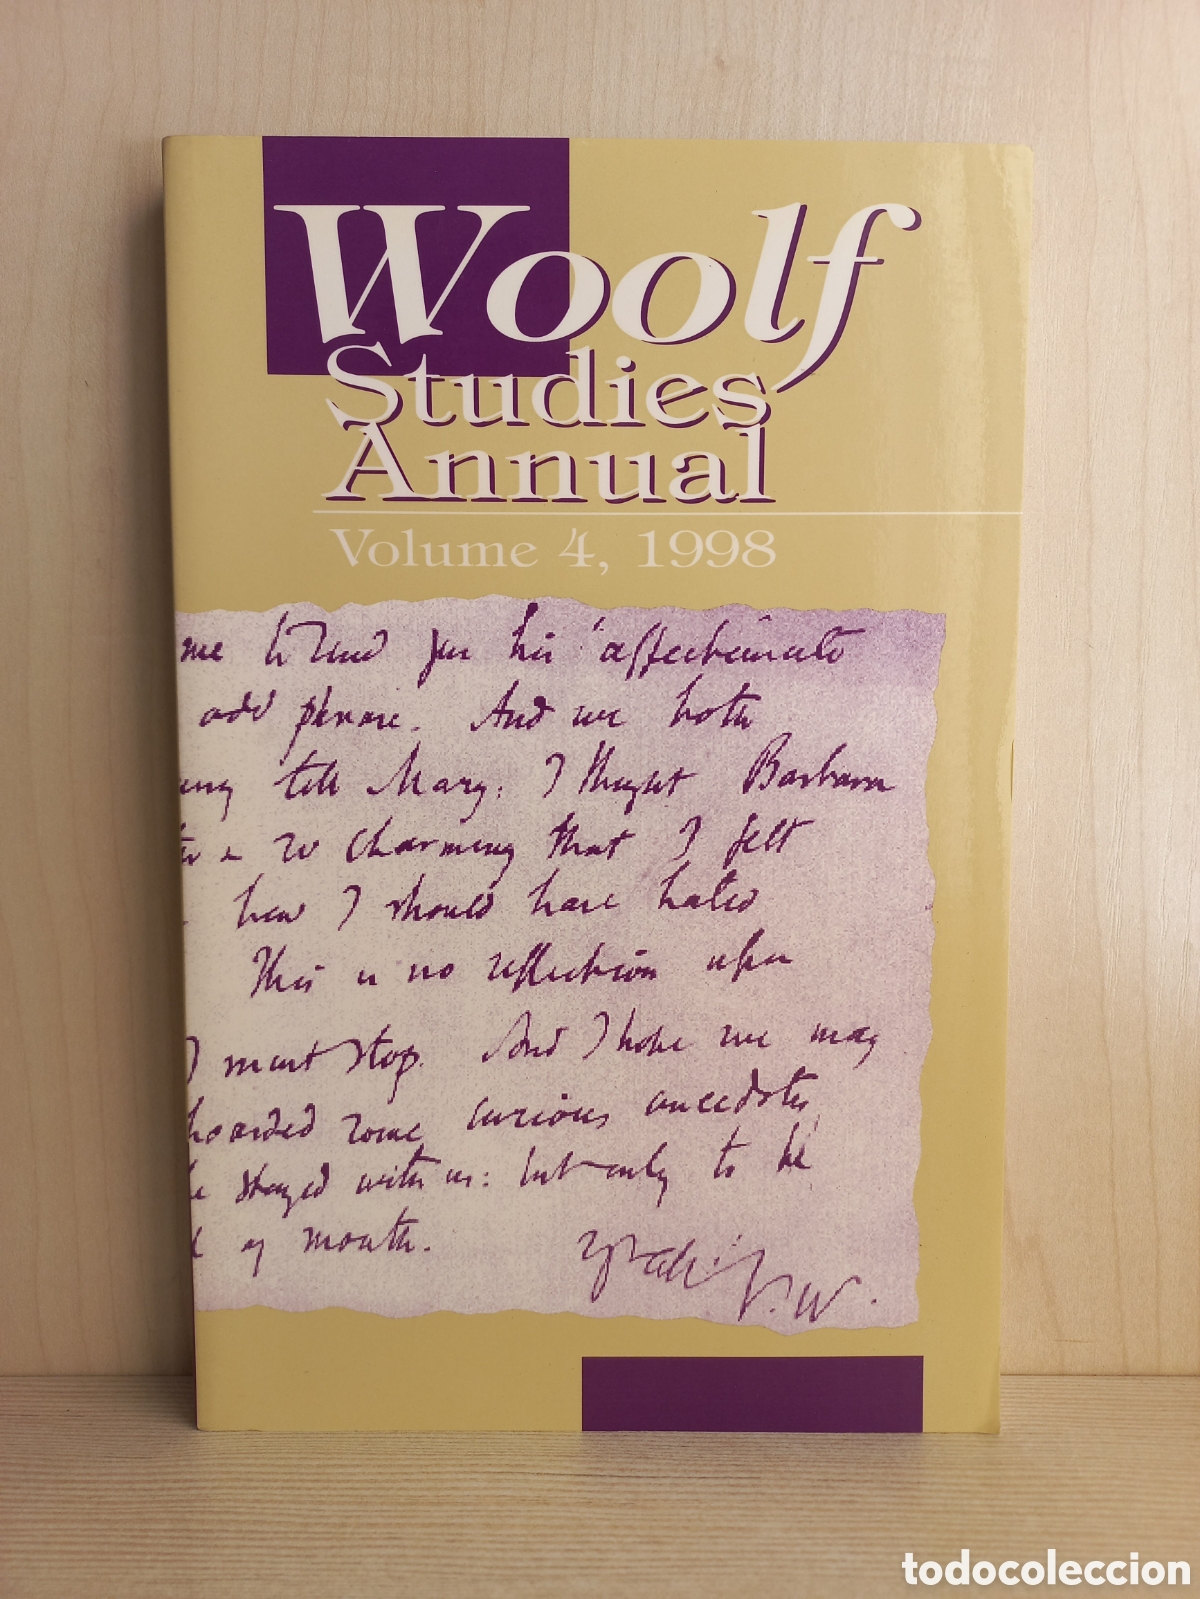 Woolf
Studies
Annual
Volume 4, 1998
me to send you his 'affectionate
odd phrase. And we both
tell Mary: I thought Barbara
so charming that I felt
how I should have hated
This is no reflection upon
I must stop. And I hope we may
hoarded some curious anecdotes
stayed with us: but only to be
of mouth.
V.W.
todocoleccion